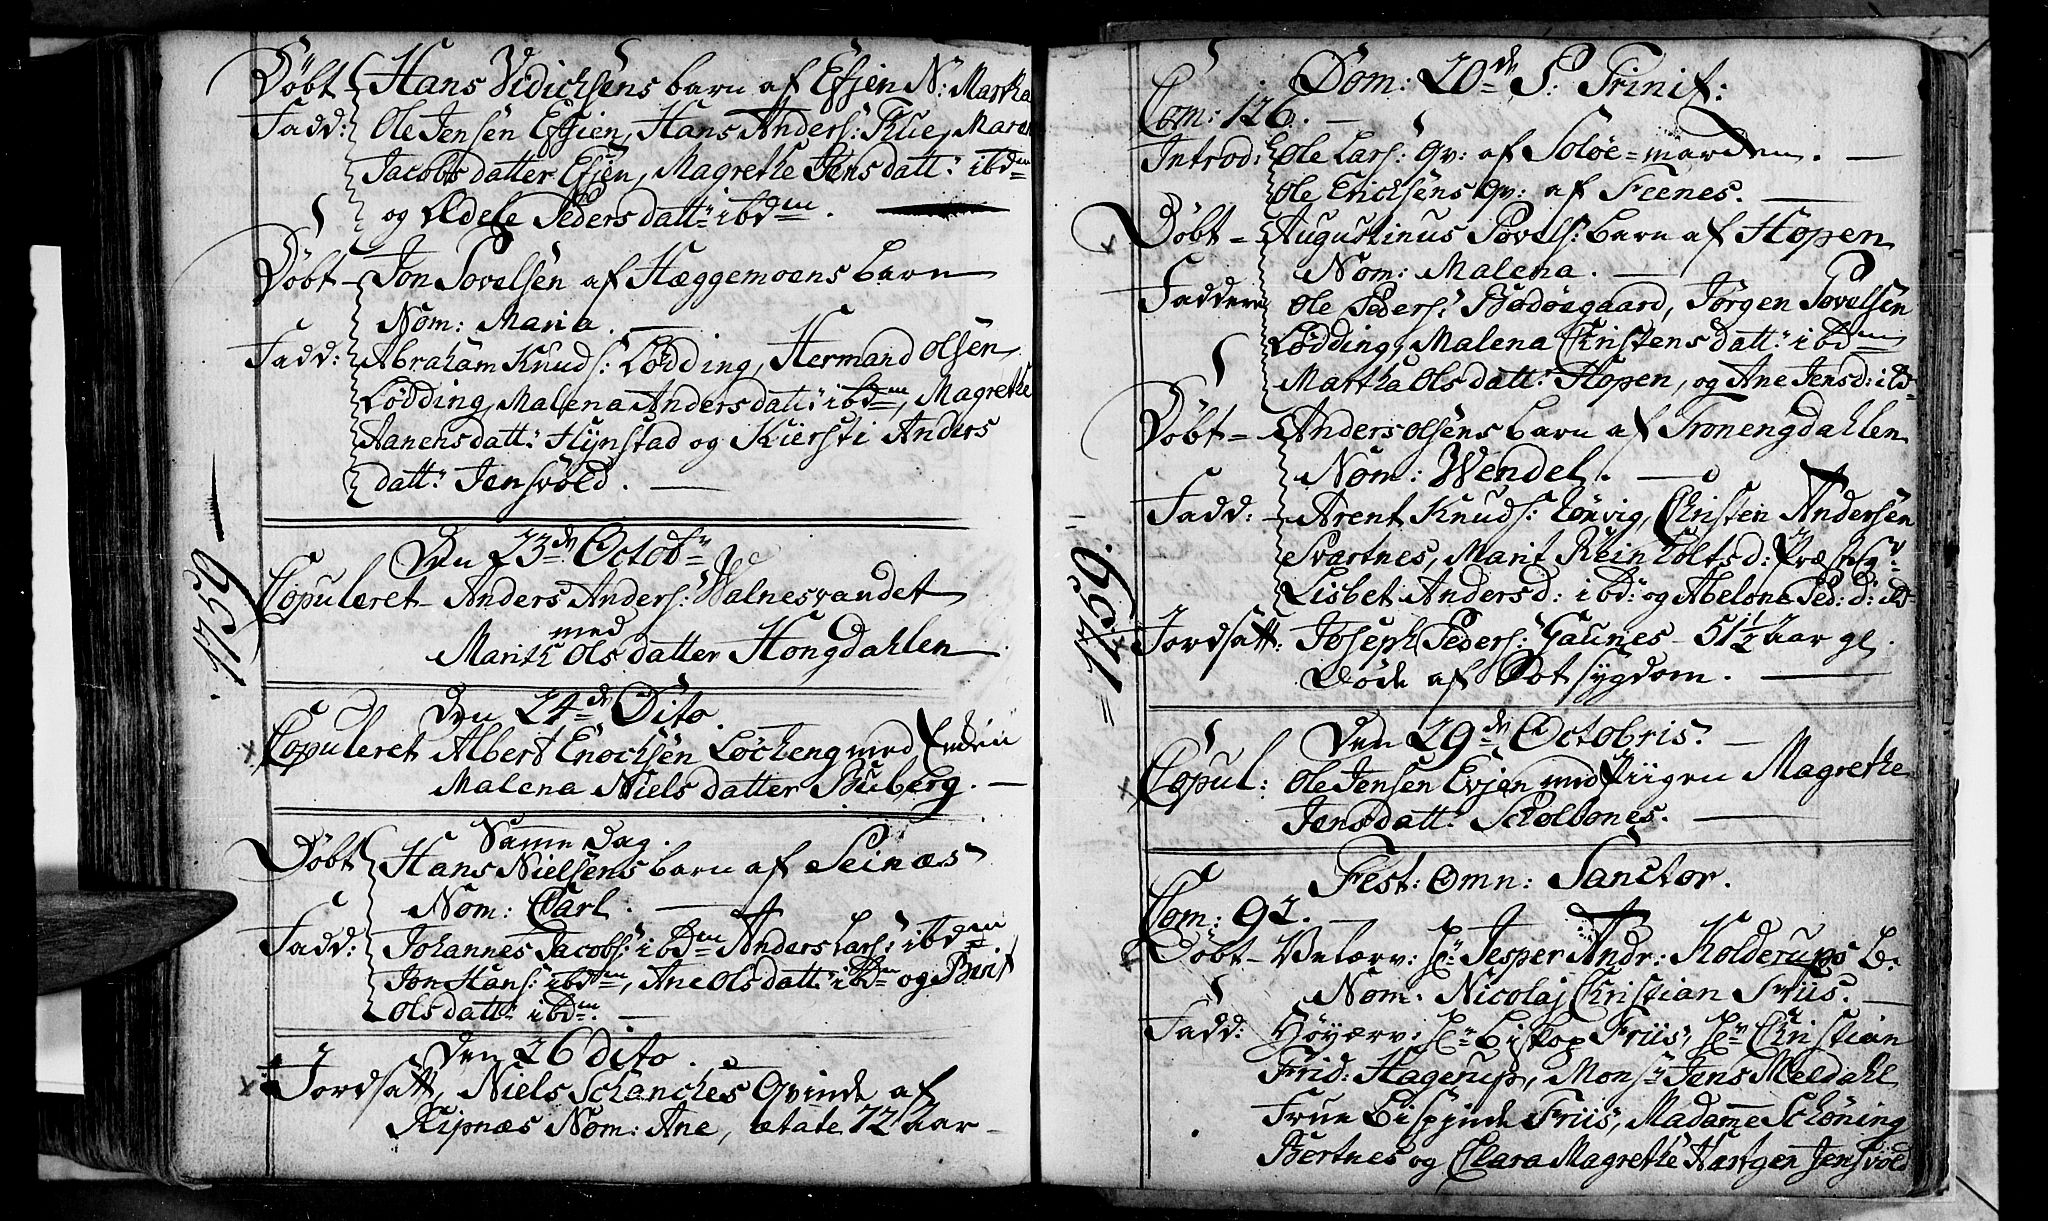 Döbt Hans Didichsens barn af Efjen N: Martha
Fadd: Ole Jensen Efjen, Hans Anders: Kue, Maren
Jacobsdatter Efjen, Magrethe Jensdatt: ibdm
og Ædele Pedersdatt: ibdm.
Döbt Jon Povelsen af Hæggemoens barn
Nom: Maria.
Fadd: Abraham Knuds: Lödding, Hermand Olsen
Lödding, Malena Andersdatt: ibdm, Magrethe
Aanensdatt: Hÿnstad og Kiersti Anders
datt: Jensvold.
1759
Den 23de Octobr
Copuleret Anders Anders: Walnesvandet
med
Marith Olsdatter Hongdahlen
Den 24de Dito.
Copuleret Albert Enochsen Löcheng med Enken
Malena Nielsdatter Buberg.
Samme Dag.
Döbt Hans Nielsens barn af Seinæs
Nom: Carl.
Fadd: Johannes Jacobs: ibdm Anders Lars: ibdm
Jon Hans: ibdm, Ane Olsdatt: ibdm og Berit
Olsdatt: ibdm.
Den 26 Dito.
Jordsatt, Niels Schanches Qvinde af
Kipnæs Nom: Ane, ætate 72 Aar
Dom: 20de P: Trinit:
Com: 126.
Introd: Ole Lars: Qv: af Solöe=marchen.
Ole Erichsens Qv: af Feenes.
Döbt = Augustinus Povels: barn af Hopen
Nom: Malena.
Faddere Ole Peders: Bodöegaard, Jörgen Povelsen
Lödding, Malena Christensdatt: ibdm
Martha Olsdatt: Hopen, og Ane Jensd: ibd
Döbt = Anders Olsens barn af Tronengdahlen
Nom: Wendel.
Fadd: Arent Knuds: Lönvig, Christen Andersen
Svartnes, Marit Reinholtsd: Præsteg:
Lisbet Andersd: ibd: og Abelone Ped: d: ibd
Jordsatt: Joseph Peders: Gaunes 51 1/2 Aar gl.
Döde af Sot sygdom.
1759.
Den 29de Octobris.
Copul: Ole Jensen Evjen med Piigen Magrethe
Jensdatt: Schelbones.
Fest: Omn: Sanctor.
Com: 92.
Döbt Velærv: Hr Jesper Andr: Kolderups B:
Nom: Nicolaj Christian Friis.
Fadd: Höyærv: Hr Biskop Friis, Hr Christian
Frid: Hagerup, Monsr Jens Meldahl
Frue Bispinde Friis, Madame Schöning
Bertnes og Clara Magrethe Hartgen Jensvöld